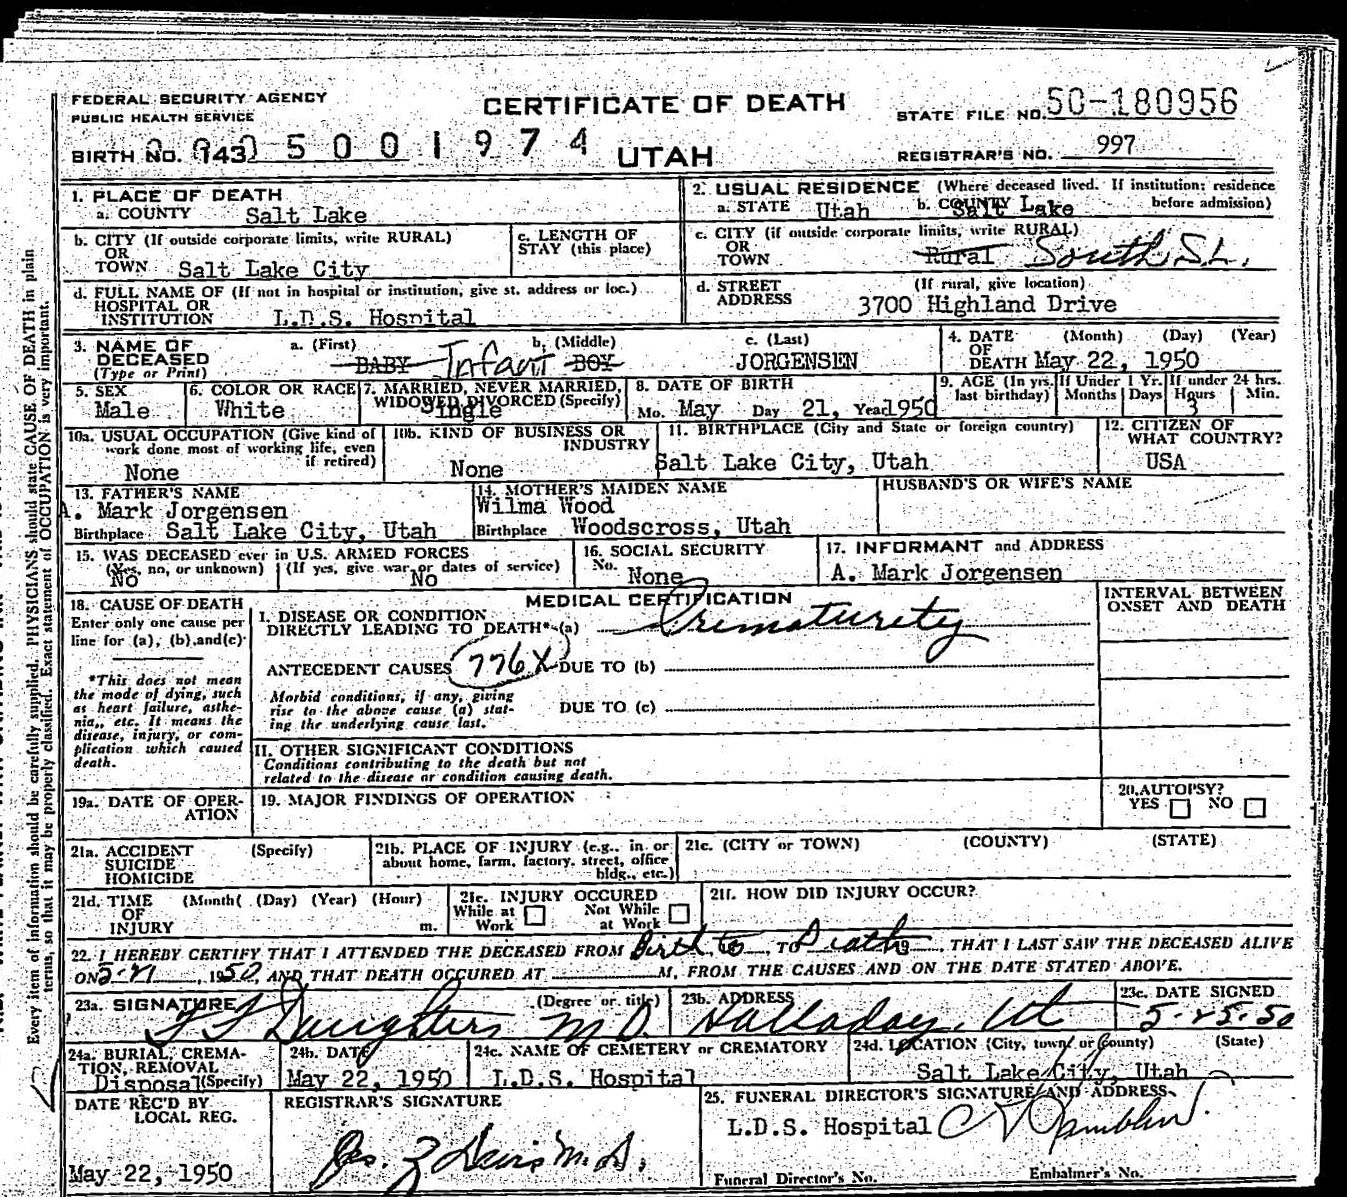 FEDERAL SECURITY AGENCY
PUBLIC HEALTH SERVICE
CERTIFICATE OF DEATH
STATE FILE NO. 50-180956
BIRTH NO. 143 5 0 0 1 9 7 4
UTAH
REGISTRAR'S NO. 997
1. PLACE OF DEATH
a. COUNTY Salt Lake
2. USUAL RESIDENCE (Where deceased lived. If institution; residence before admission)
a. STATE Utah b. COUNTY Salt Lake
b. CITY (If outside corporate limits, write RURAL)
OR
TOWN Salt Lake City
c. LENGTH OF
STAY (this place)
c. CITY (if outside corporate limits, write RURAL)
OR
TOWN Rural South S.L.
d. FULL NAME OF (If not in hospital or institution, give st. address or loc.)
HOSPITAL OR
INSTITUTION L.D.S. Hospital
d. STREET (If rural, give location)
ADDRESS 3700 Highland Drive
3. NAME OF DECEASED (Type or Print)
a. (First) b. (Middle) c. (Last)
BABY Infant BOY JORGENSEN
4. DATE OF DEATH (Month) (Day) (Year)
May 22, 1950
5. SEX
Male
6. COLOR OR RACE
White
7. MARRIED, NEVER MARRIED,
WIDOWED DIVORCED (Specify)
Single
8. DATE OF BIRTH
Mo. May Day 21, Year 1950
9. AGE (In yrs. last birthday)
If Under 1 Yr. Months Days
If under 24 hrs. Hours Min.
3
10a. USUAL OCCUPATION (Give kind of
work done most of working life, even
if retired)
None
10b. KIND OF BUSINESS OR
INDUSTRY
None
11. BIRTHPLACE (City and State or foreign country)
Salt Lake City, Utah
12. CITIZEN OF
WHAT COUNTRY?
USA
13. FATHER'S NAME
A. Mark Jorgensen
Birthplace Salt Lake City, Utah
14. MOTHER'S MAIDEN NAME
Wilma Wood
Birthplace Woodscross, Utah
HUSBAND'S OR WIFE'S NAME
15. WAS DECEASED ever in U.S. ARMED FORCES
(Yes, no, or unknown) (If yes, give war or dates of service)
No No
16. SOCIAL SECURITY
No. None
17. INFORMANT and ADDRESS
A. Mark Jorgensen
18. CAUSE OF DEATH
Enter only one cause per
line for (a), (b), and (c)
*This does not mean
the mode of dying, such
as heart failure, asthe-
nia,, etc. It means the
disease, injury, or com-
plication which caused
death.
MEDICAL CERTIFICATION
I. DISEASE OR CONDITION
DIRECTLY LEADING TO DEATH* (a) Prematurity
ANTECEDENT CAUSES 776X DUE TO (b)
Morbid conditions, if any, giving
rise to the above cause (a) stat-
ing the underlying cause last.
DUE TO (c)
II. OTHER SIGNIFICANT CONDITIONS
Conditions contributing to the death but not
related to the disease or condition causing death.
INTERVAL BETWEEN
ONSET AND DEATH
19a. DATE OF OPER-
ATION
19. MAJOR FINDINGS OF OPERATION
20. AUTOPSY?
YES NO
21a. ACCIDENT (Specify)
SUICIDE
HOMICIDE
21b. PLACE OF INJURY (e.g., in or
about home, farm, factory, street, office
bldg., etc.)
21c. (CITY or TOWN) (COUNTY) (STATE)
21d. TIME (Month( (Day) (Year) (Hour)
OF
INJURY m.
21e. INJURY OCCURED
While at Work Not While at Work
21f. HOW DID INJURY OCCUR?
22. I HEREBY CERTIFY THAT I ATTENDED THE DECEASED FROM Birth to TO Death, 19, THAT I LAST SAW THE DECEASED ALIVE
ON 5-21, 1950, AND THAT DEATH OCCURED AT M, FROM THE CAUSES AND ON THE DATE STATED ABOVE.
23a. SIGNATURE (Degree or title)
Daughters M.D.
23b. ADDRESS
Holladay, Ut
23c. DATE SIGNED
5-25-50
24a. BURIAL, CREMA-
TION, REMOVAL
Disposal (Specify)
24b. DATE
May 22, 1950
24c. NAME OF CEMETERY or CREMATORY
L.D.S. Hospital
24d. LOCATION (City, town, or County) (State)
Salt Lake City, Utah
DATE REC'D BY
LOCAL REG.
May 22, 1950
REGISTRAR'S SIGNATURE
M.D.
25. FUNERAL DIRECTOR'S SIGNATURE AND ADDRESS
L.D.S. Hospital
Funeral Director's No. Embalmer's No.
Every item of information should be carefully supplied. PHYSICIANS should state CAUSE OF DEATH in plain
terms, so that it may be properly classified. Exact statement of OCCUPATION is very important.